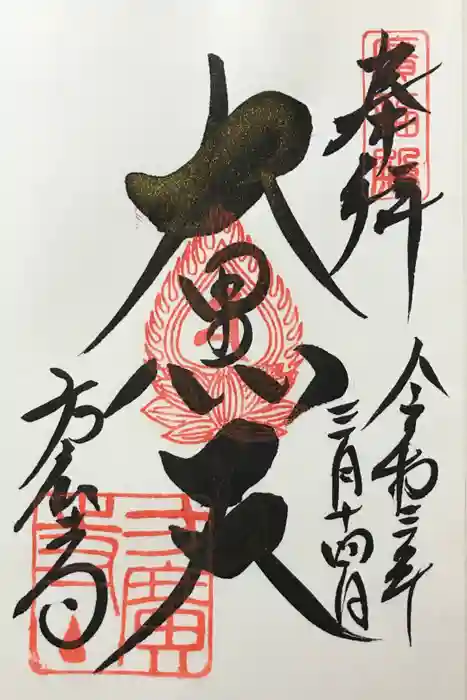 奉拝
令和三年
三月十四日
大黒天
方広寺